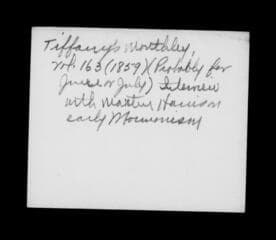 Tiffany's Monthly,
vol. 163 (1859) (Probably for
June or July) Interview
with Martin Harrison
early Mormonism